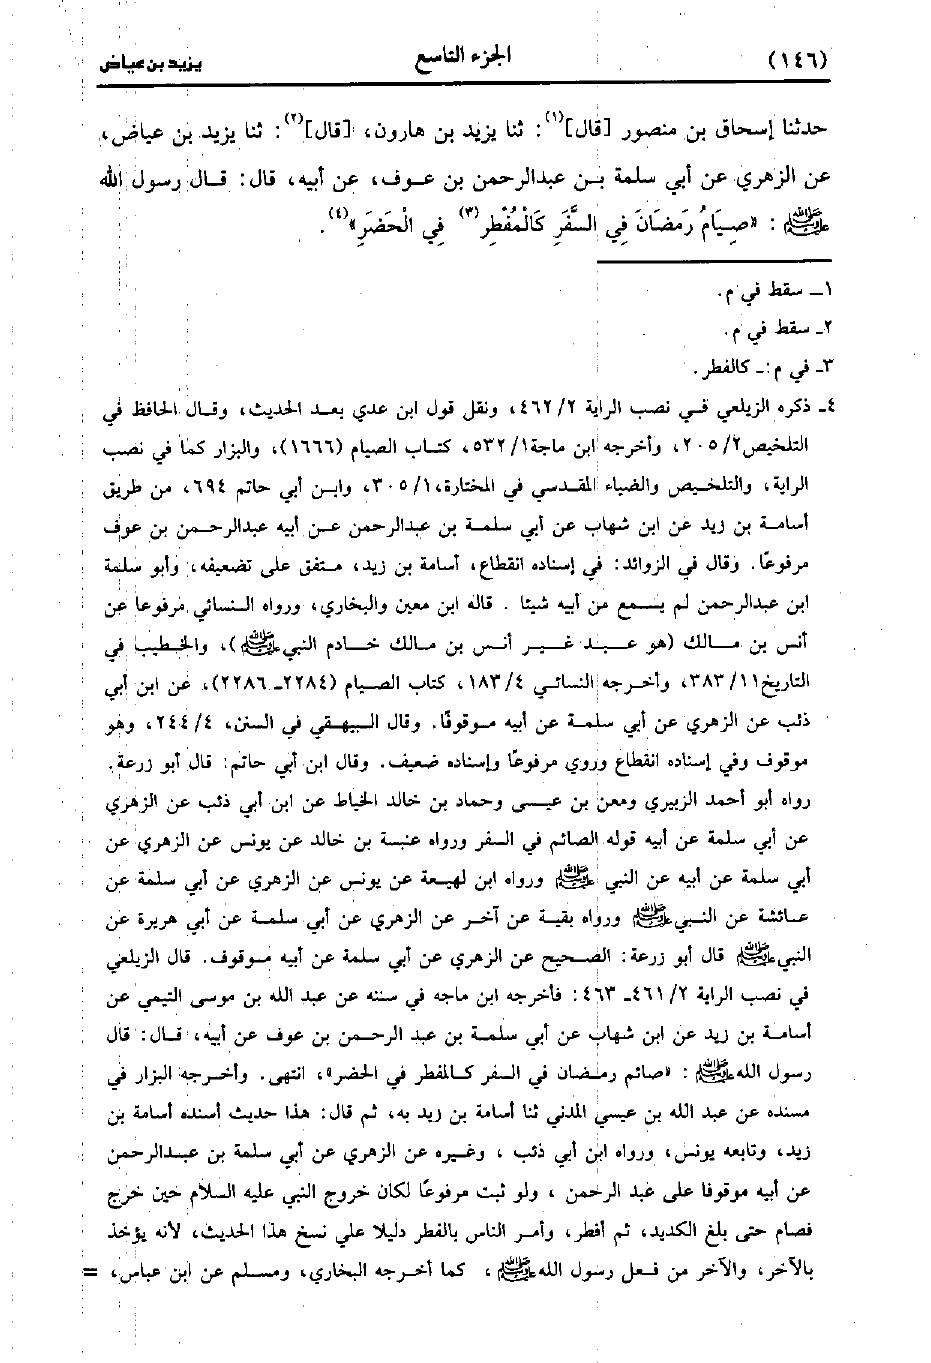 (١٤٦) الجزء التاسع يزيد بن عياض
حدثنا إسحاق بن منصور [قال](١): ثنا يزيد بن هارون، [قال](٢): ثنا يزيد بن عياض،
عن الزهري عن أبي سلمة بن عبدالرحمن بن عوف، عن أبيه، قال: قال رسول الله
ﷺ : «صِيَامُ رَمَضَانَ فِي السَّفَرِ كَالْمُفْطِرِ(٣) فِي الْحَضَرِ»(٤).
١ـ سقط في م.
٢ـ سقط في م.
٣ـ في م:ـ كالفطر.
٤ـ ذكره الزيلعي في نصب الراية ٤٦٢/٢، ونقل قول ابن عدي بعد الحديث، وقال الحافظ في
التلخيص٢٠٥/٢، وأخرجه ابن ماجة٥٣٢/١، كتاب الصيام (١٦٦٦)، والبزار كما في نصب
الراية، والتلخيص والضياء المقدسي في المختارة،٣٠٥/١، وابن أبي حاتم ٦٩٤، من طريق
أسامة بن زيد عن ابن شهاب عن أبي سلمة بن عبدالرحمن عن أبيه عبدالرحمن بن عوف
مرفوعًا. وقال في الزوائد: في إسناده انقطاع، أسامة بن زيد، متفق على تضعيفه، وأبو سلمة
ابن عبدالرحمن لم يسمع من أبيه شيئا . قاله ابن معين والبخاري، ورواه النسائي مرفوعا عن
أنس بن مالك (هو عبد غير أنس بن مالك خادم النبيﷺ)، والخطيب في
التاريخ٣٨٣/١١، وأخرجه النسائي ١٨٣/٤، كتاب الصيام (٢٢٨٤ـ ٢٢٨٦)، عن ابن أبي
ذئب عن الزهري عن أبي سلمة عن أبيه موقوفًا. وقال البيهقي في السنن، ٢٤٤/٤، وهو
موقوف وفي إسناده انقطاع وروي مرفوعًا وإسناده ضعيف. وقال ابن أبي حاتم: قال أبو زرعة.
رواه أبو أحمد الزبيري ومعن بن عيسى وحماد بن خالد الخياط عن ابن أبي ذئب عن الزهري
عن أبي سلمة عن أبيه قوله الصائم في السفر ورواه عنبسة بن خالد عن يونس عن الزهري عن
أبي سلمة عن أبيه عن النبي ﷺ ورواه ابن لهيعة عن يونس عن الزهري عن أبي سلمة عن
عائشة عن النبيﷺ ورواه بقية عن آخر عن الزهري عن أبي سلمة عن أبي هريرة عن
النبيﷺ قال أبو زرعة: الصحيح عن الزهري عن أبي سلمة عن أبيه موقوف. قال الزيلعي
في نصب الراية ٤٦١/٢ـ ٤٦٣: فأخرجه ابن ماجه في سننه عن عبد الله بن موسى التيمي عن
أسامة بن زيد عن ابن شهاب عن أبي سلمة بن عبد الرحمن بن عوف عن أبيه، قال: قال
رسول اللهﷺ : «صائم رمضان في السفر كالمفطر في الحضر»، انتهى. وأخرجه البزار في
مسنده عن عبد الله بن عيسى المدني ثنا أسامة بن زيد به، ثم قال: هذا حديث أسنده أسامة بن
زيد، وتابعه يونس، ورواه ابن أبي ذئب ، وغيره عن الزهري عن أبي سلمة بن عبدالرحمن
عن أبيه موقوفا على عبد الرحمن ، ولو ثبت مرفوعًا لكان خروج النبي عليه السلام حين خرج
فصام حتى بلغ الكديد، ثم أفطر، وأمر الناس بالفطر دليلا علي نسخ هذا الحديث، لأنه يؤخذ
بالآخر، والآخر من فعل رسول اللهﷺ، كما أخرجه البخاري، ومسلم عن ابن عباس، =